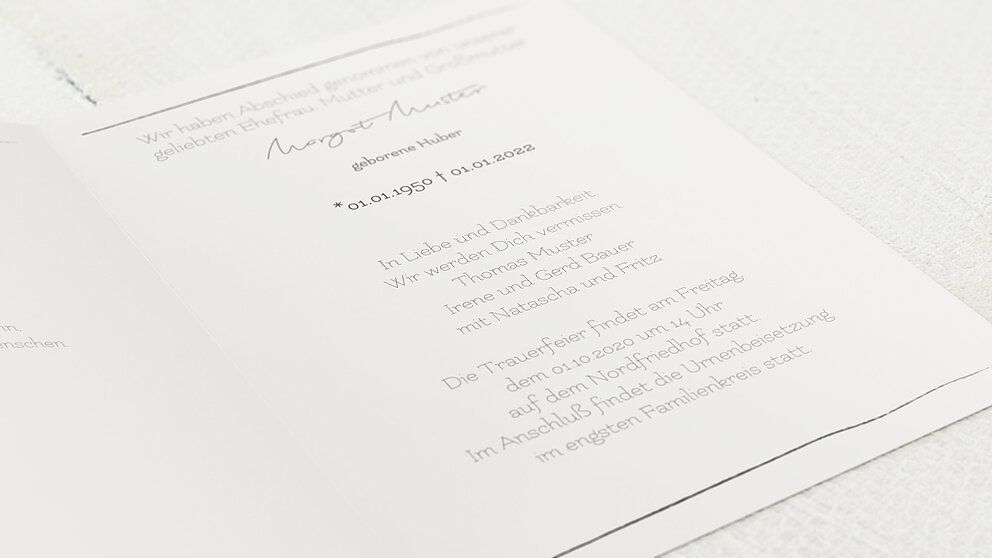 Wir haben Abschied genommen von unserer
geliebten Ehefrau, Mutter und Großmutter
Margot Muster
geborene Huber
* 01.01.1950 † 01.01.2022
In Liebe und Dankbarkeit
Wir werden Dich vermissen.
Thomas Muster
Irene und Gerd Bauer
mit Natascha und Fritz
Die Trauerfeier findet am Freitag,
dem 01.10.2020 um 14 Uhr
auf dem Nordfriedhof statt.
Im Anschluß findet die Urnenbeisetzung
im engsten Familienkreis statt.